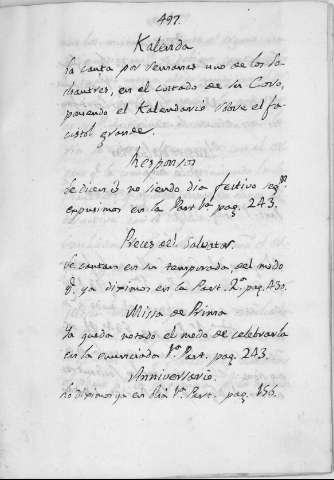 497.
Kalenda
la canta por semanas uno de los so-
chantres, en el costado de su Coro,
poniendo el Kalendario sobre el fa-
cistol grande.
Responsos
se dicen no siendo dia festivo seg.n
expusimos en la Part. 1.a pag. 243.
Preces del Salvator.
se cantan en su temporada del modo
q.e ya diximos en la Part. 2.a pag. 430.
Missa de Prima
Ya queda notado el modo de celebrarla
en la enunciada 1.a Part. pag. 243.
Anniversario.
lo diximos ya en dha 1.a Part. pag. 156.